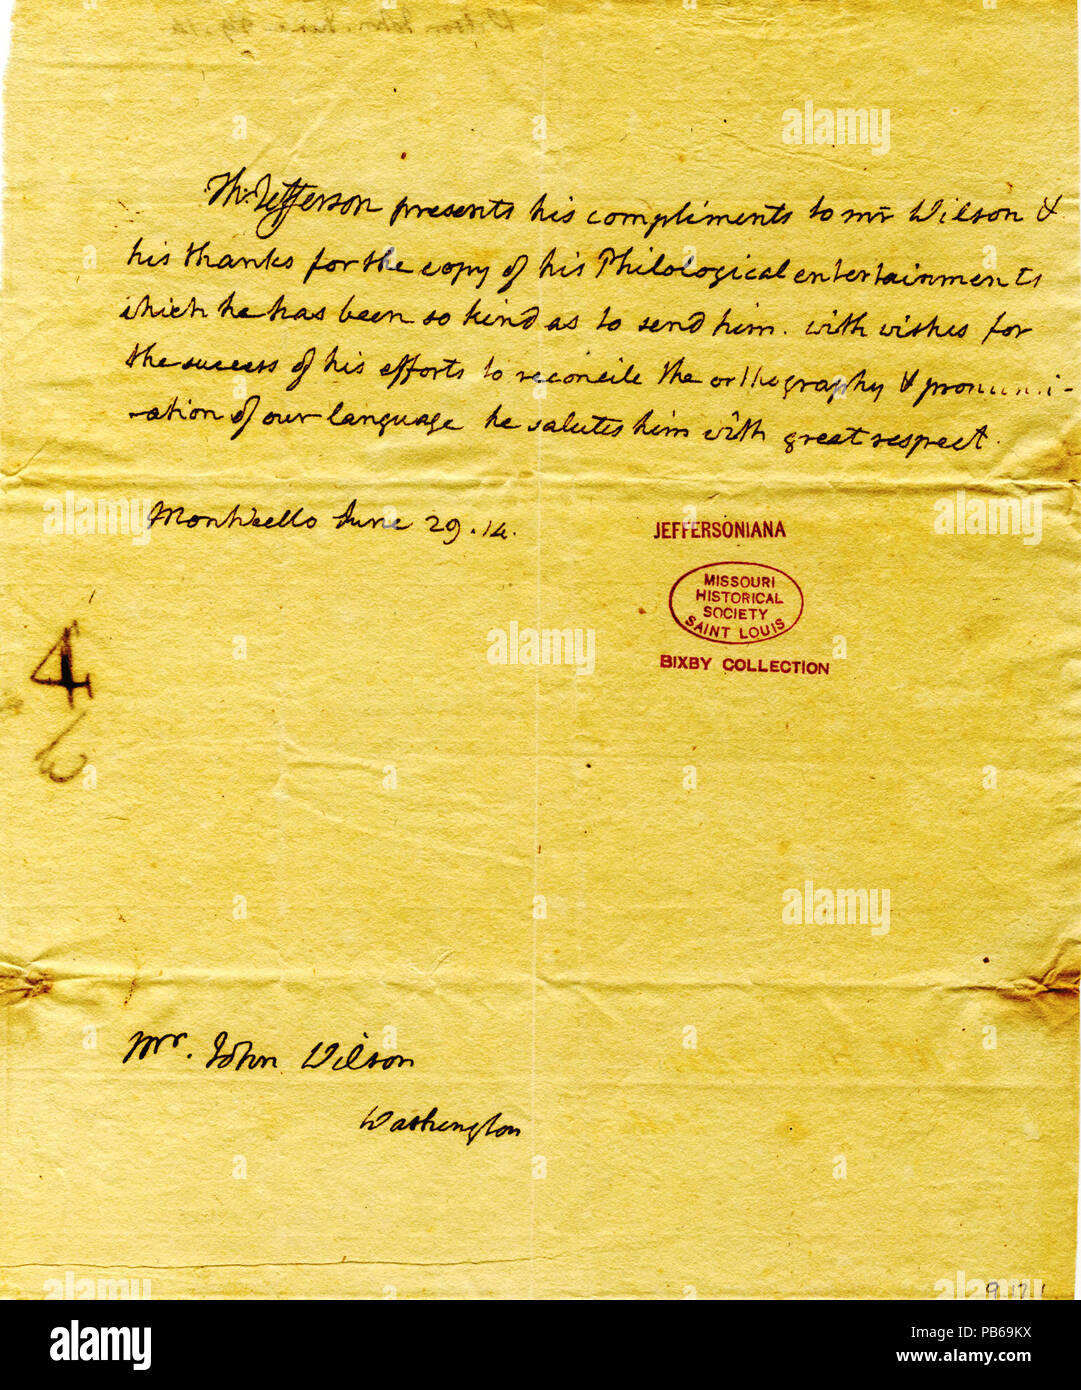 Th: Jefferson presents his compliments to mr Wilson &
his thanks for the copy of his Philological entertainments
which he has been so kind as to send him. with wishes for
the success of his efforts to reconcile the orthography & pronunci-
-ation of our language he salutes him with great respect.
Monticello June 29. 14.
JEFFERSONIANA
MISSOURI
HISTORICAL
SOCIETY
SAINT LOUIS
BIXBY COLLECTION
4
Mr. John Wilson
Washington
alamy
Image ID: PB69KX
www.alamy.com